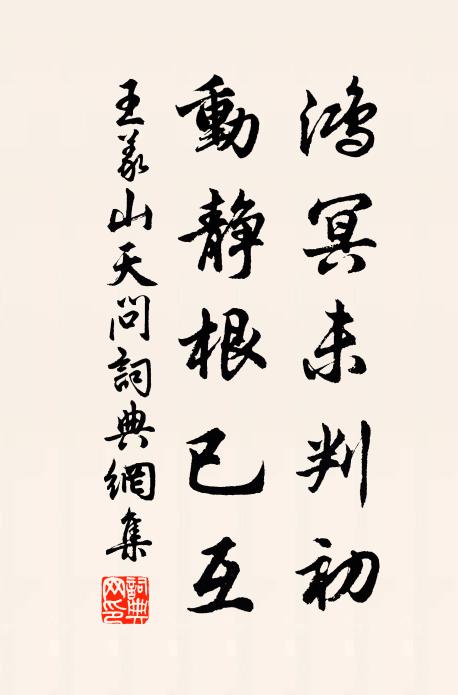 鴻冥未判初
動靜根已互
王義山天問詞典網集
詞典网印